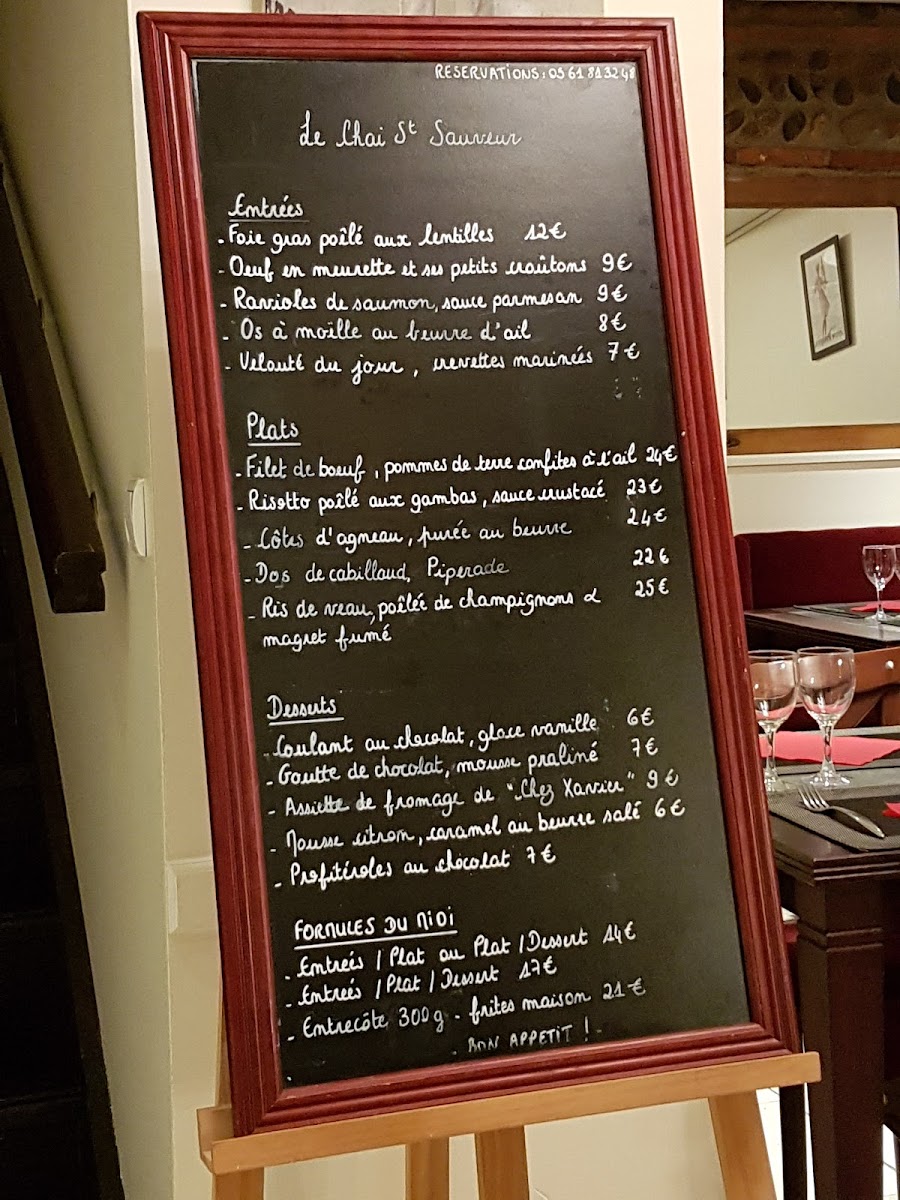 RESERVATIONS : 05 61 81 32 48
Le Chai St Sauveur
Entrées
- Foie gras poêlé aux lentilles 12€
- Oeuf en meurette et ses petits croûtons 9€
- Ravioles de saumon, sauce parmesan 9€
- Os à moëlle au beurre d'ail 8€
- Velouté du jour, crevettes marinées 7€
Plats
- Filet de boeuf, pommes de terre confites à l'ail 24€
- Risotto poêlé aux gambas, sauce crustacé 23€
- Côtes d'agneau, purée au beurre 24€
- Dos de cabillaud, Piperade 22€
- Ris de veau, poêlée de champignons & 25€
magret fumé
Desserts
- Coulant au chocolat, glace vanille 6€
- Goutte de chocolat, mousse praliné 7€
- Assiette de fromage de "Chez Xavier" 9€
- Mousse citron, caramel au beurre salé 6€
- Profitéroles au chocolat 7€
FORMULES DU MIDI
- Entreés / Plat ou Plat / Dessert 14€
- Entreés / Plat / Dessert 17€
- Entrecôte 300g - frites maison 21€
- BON APPETIT ! -